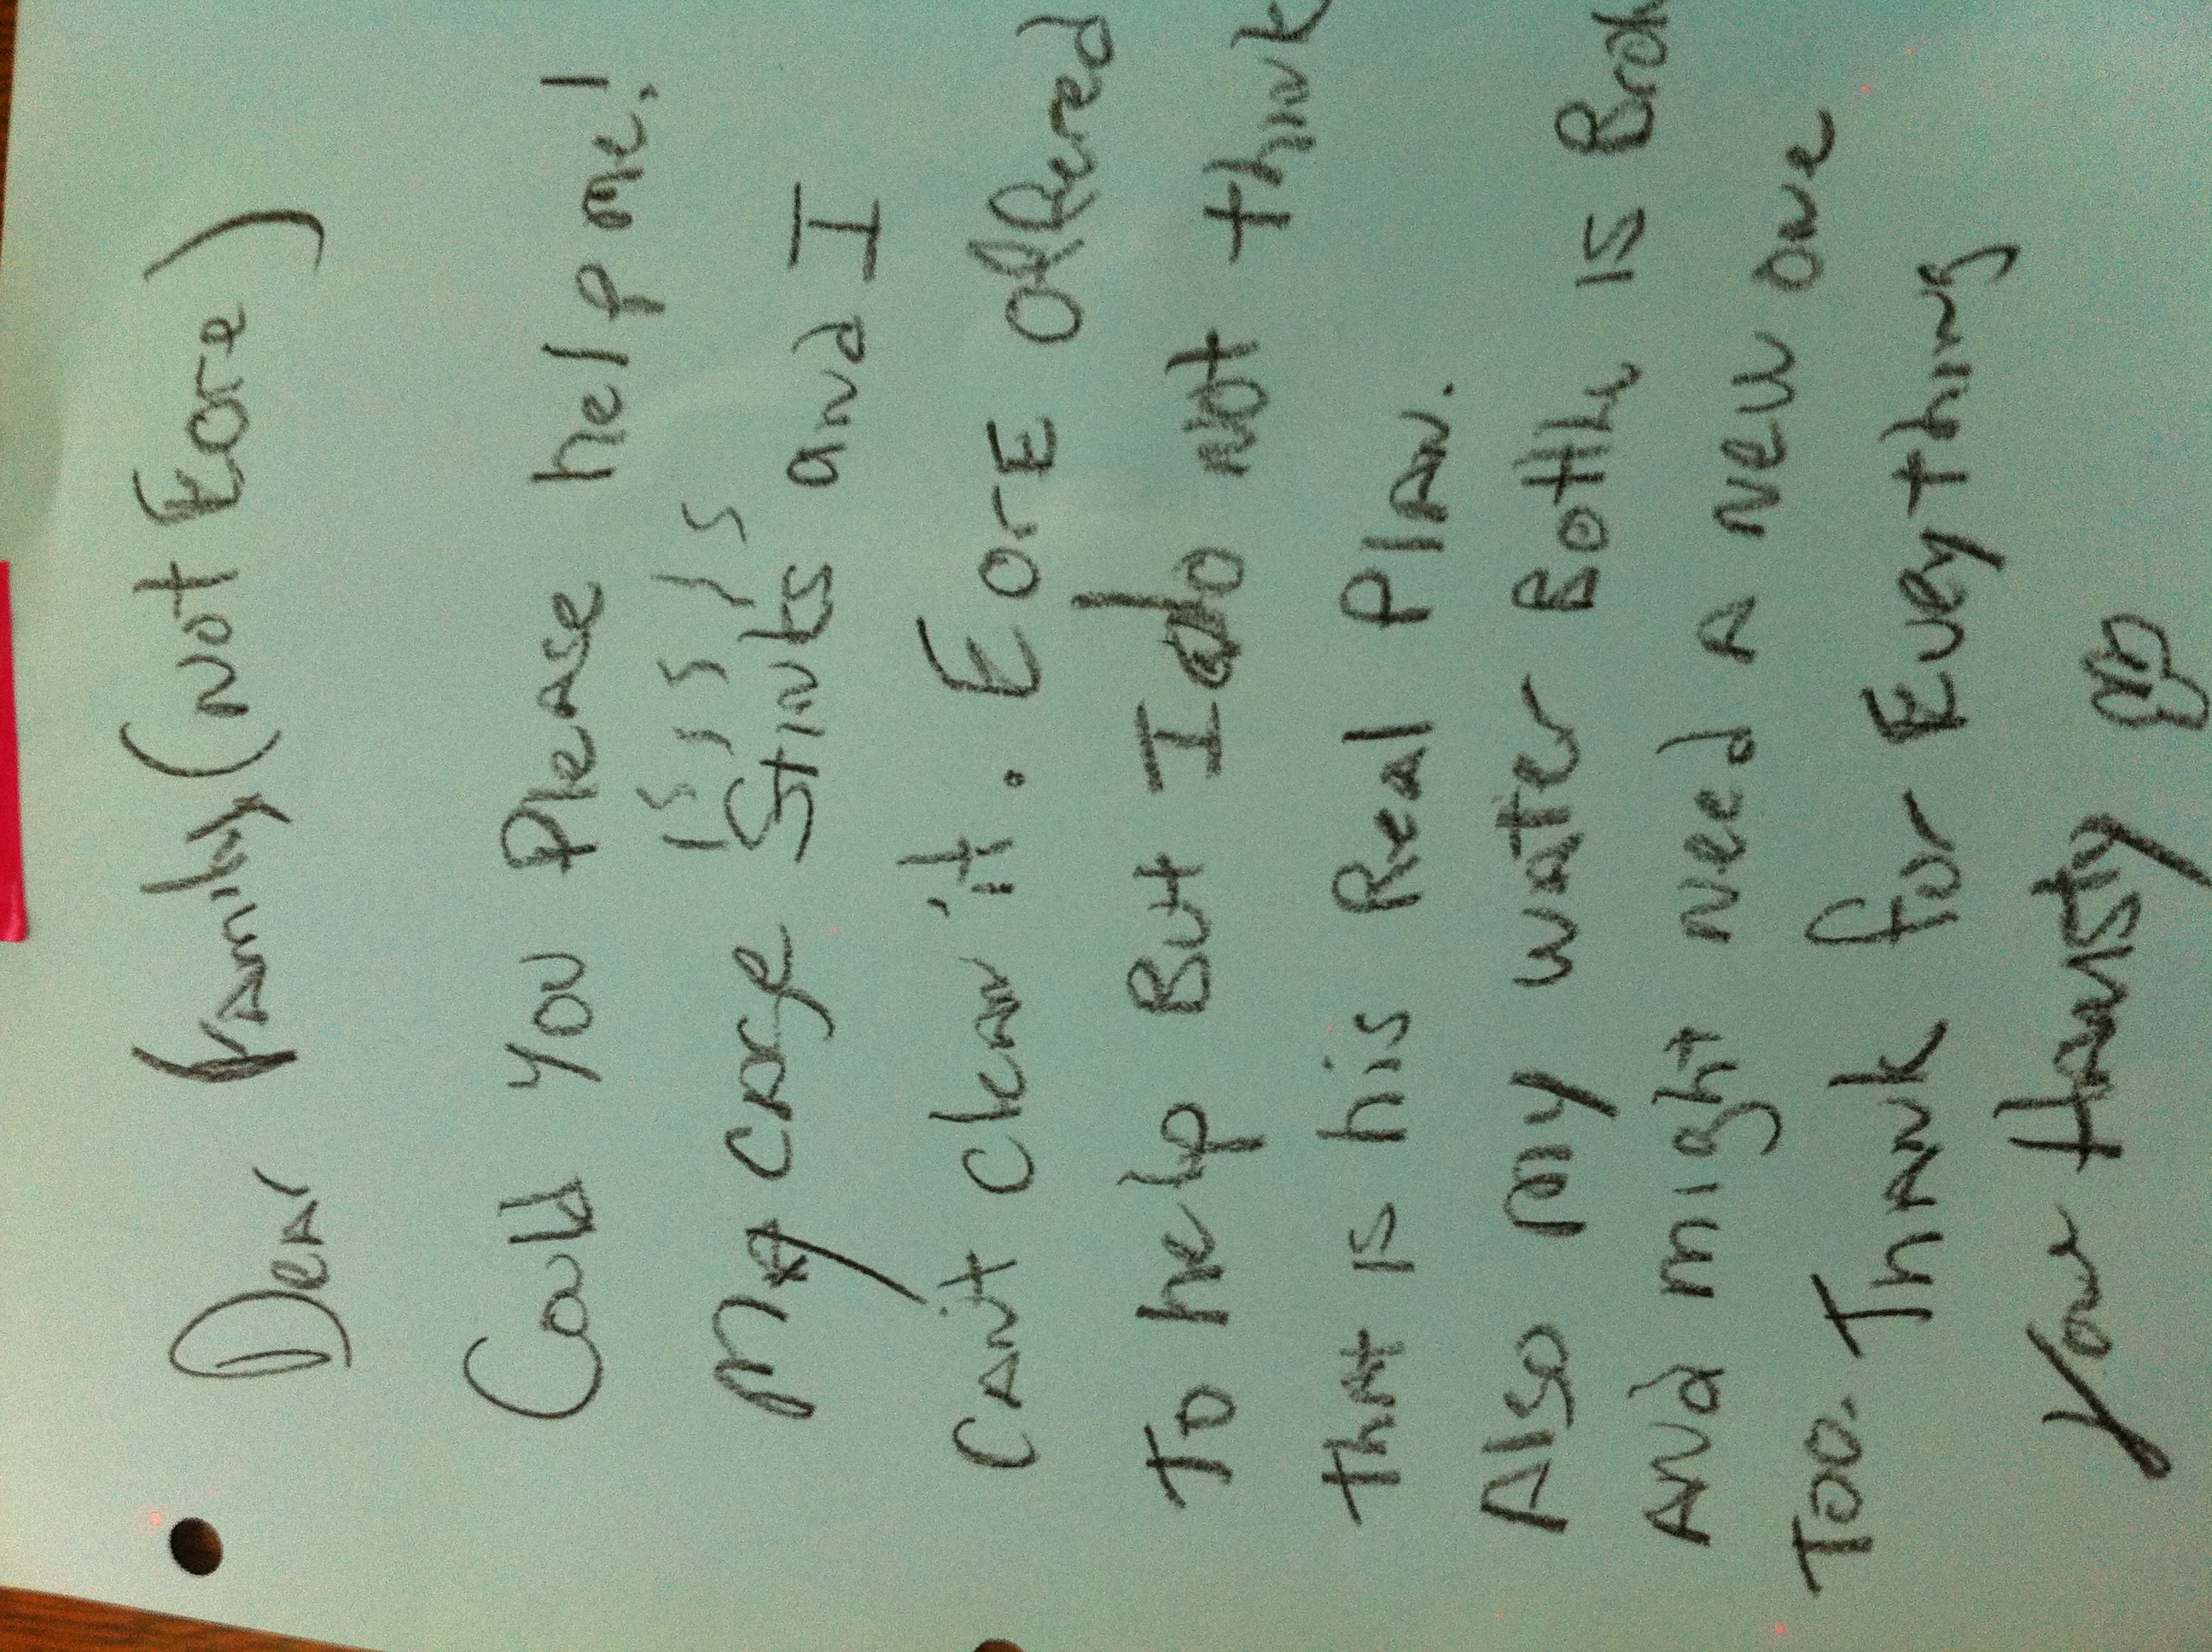 Dear family (not Eore)
Could you Please help me!
My cage Stinks and I
can't clean it. Eore offered
To help But I do not think
that is his Real Plan.
Also my water Bottle is
and might need a new one
Too. Thank for Everything
Your Hamsty